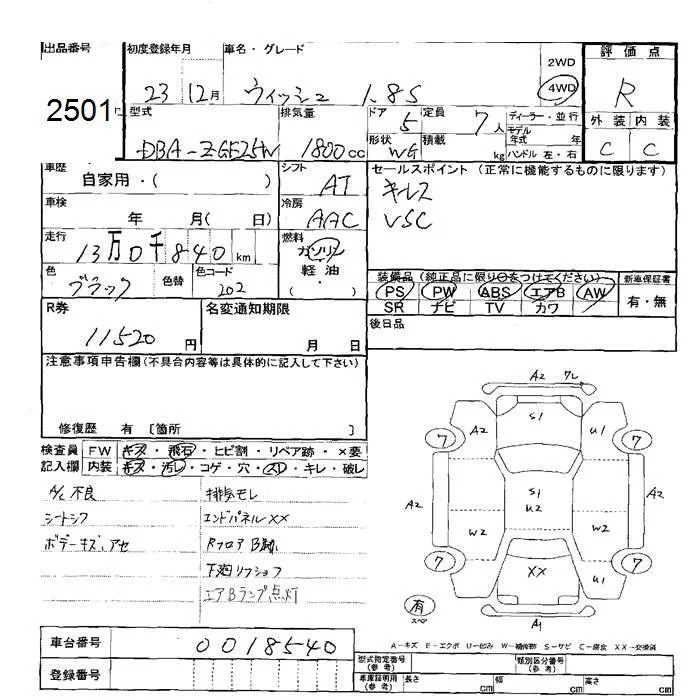 出品番号 初度登録年月 車名・グレード 評価点
2501
23 12月 ウィッシュ 1.8S 2WD 4WD R
型式 排気量 ドア 定員 ディーラー・並行 外装 内装
DBA-ZGE25W 1800cc 5 7人 モデル年式 年
形状 WG 積載 kg ハンドル 左・右 C C
車歴 シフト セールスポイント(正常に機能するものに限ります)
自家用・( ) AT キーレス
車検 冷房 VSC
年 月( 日) AAC
走行 燃料
13万0千840km ガソリン
軽油
・
( )
色 色替 色コード 装備品(純正品に限り○をつけてください) 新車保証書
ブラック 202 PS PW ABS エアB AW 有・無
SR ナビ TV カワ
R券 名変通知期限 後日品
11520円 月 日
注意事項申告欄(不具合内容等は具体的に記入して下さい)
修復歴 有〔箇所 〕
検査員 FW キズ・飛石・ヒビ割・リペア跡・×要
記入欄 内装 キズ・汚レ・コゲ・穴・スレ・キレ・破レ
A/C不良 排気モレ
シートシワ エンドパネルXX
ボデーキズ、アセ Rフロア
下廻リ
エアBランプ点灯
A2
S1
A2 U1
7 7
A2 S1 A2
U2
W2 W2
7 7
XX U1
有
スペア
A1
A-キズ E-エクボ U-凹ミ W-補修跡 S-サビ C-腐食 XX-交換済
車台番号 0018540
型式指定番号(参考) 類別区分番号(参考)
登録番号 車庫証明用(参考) 長さ cm 幅 cm 高さ cm